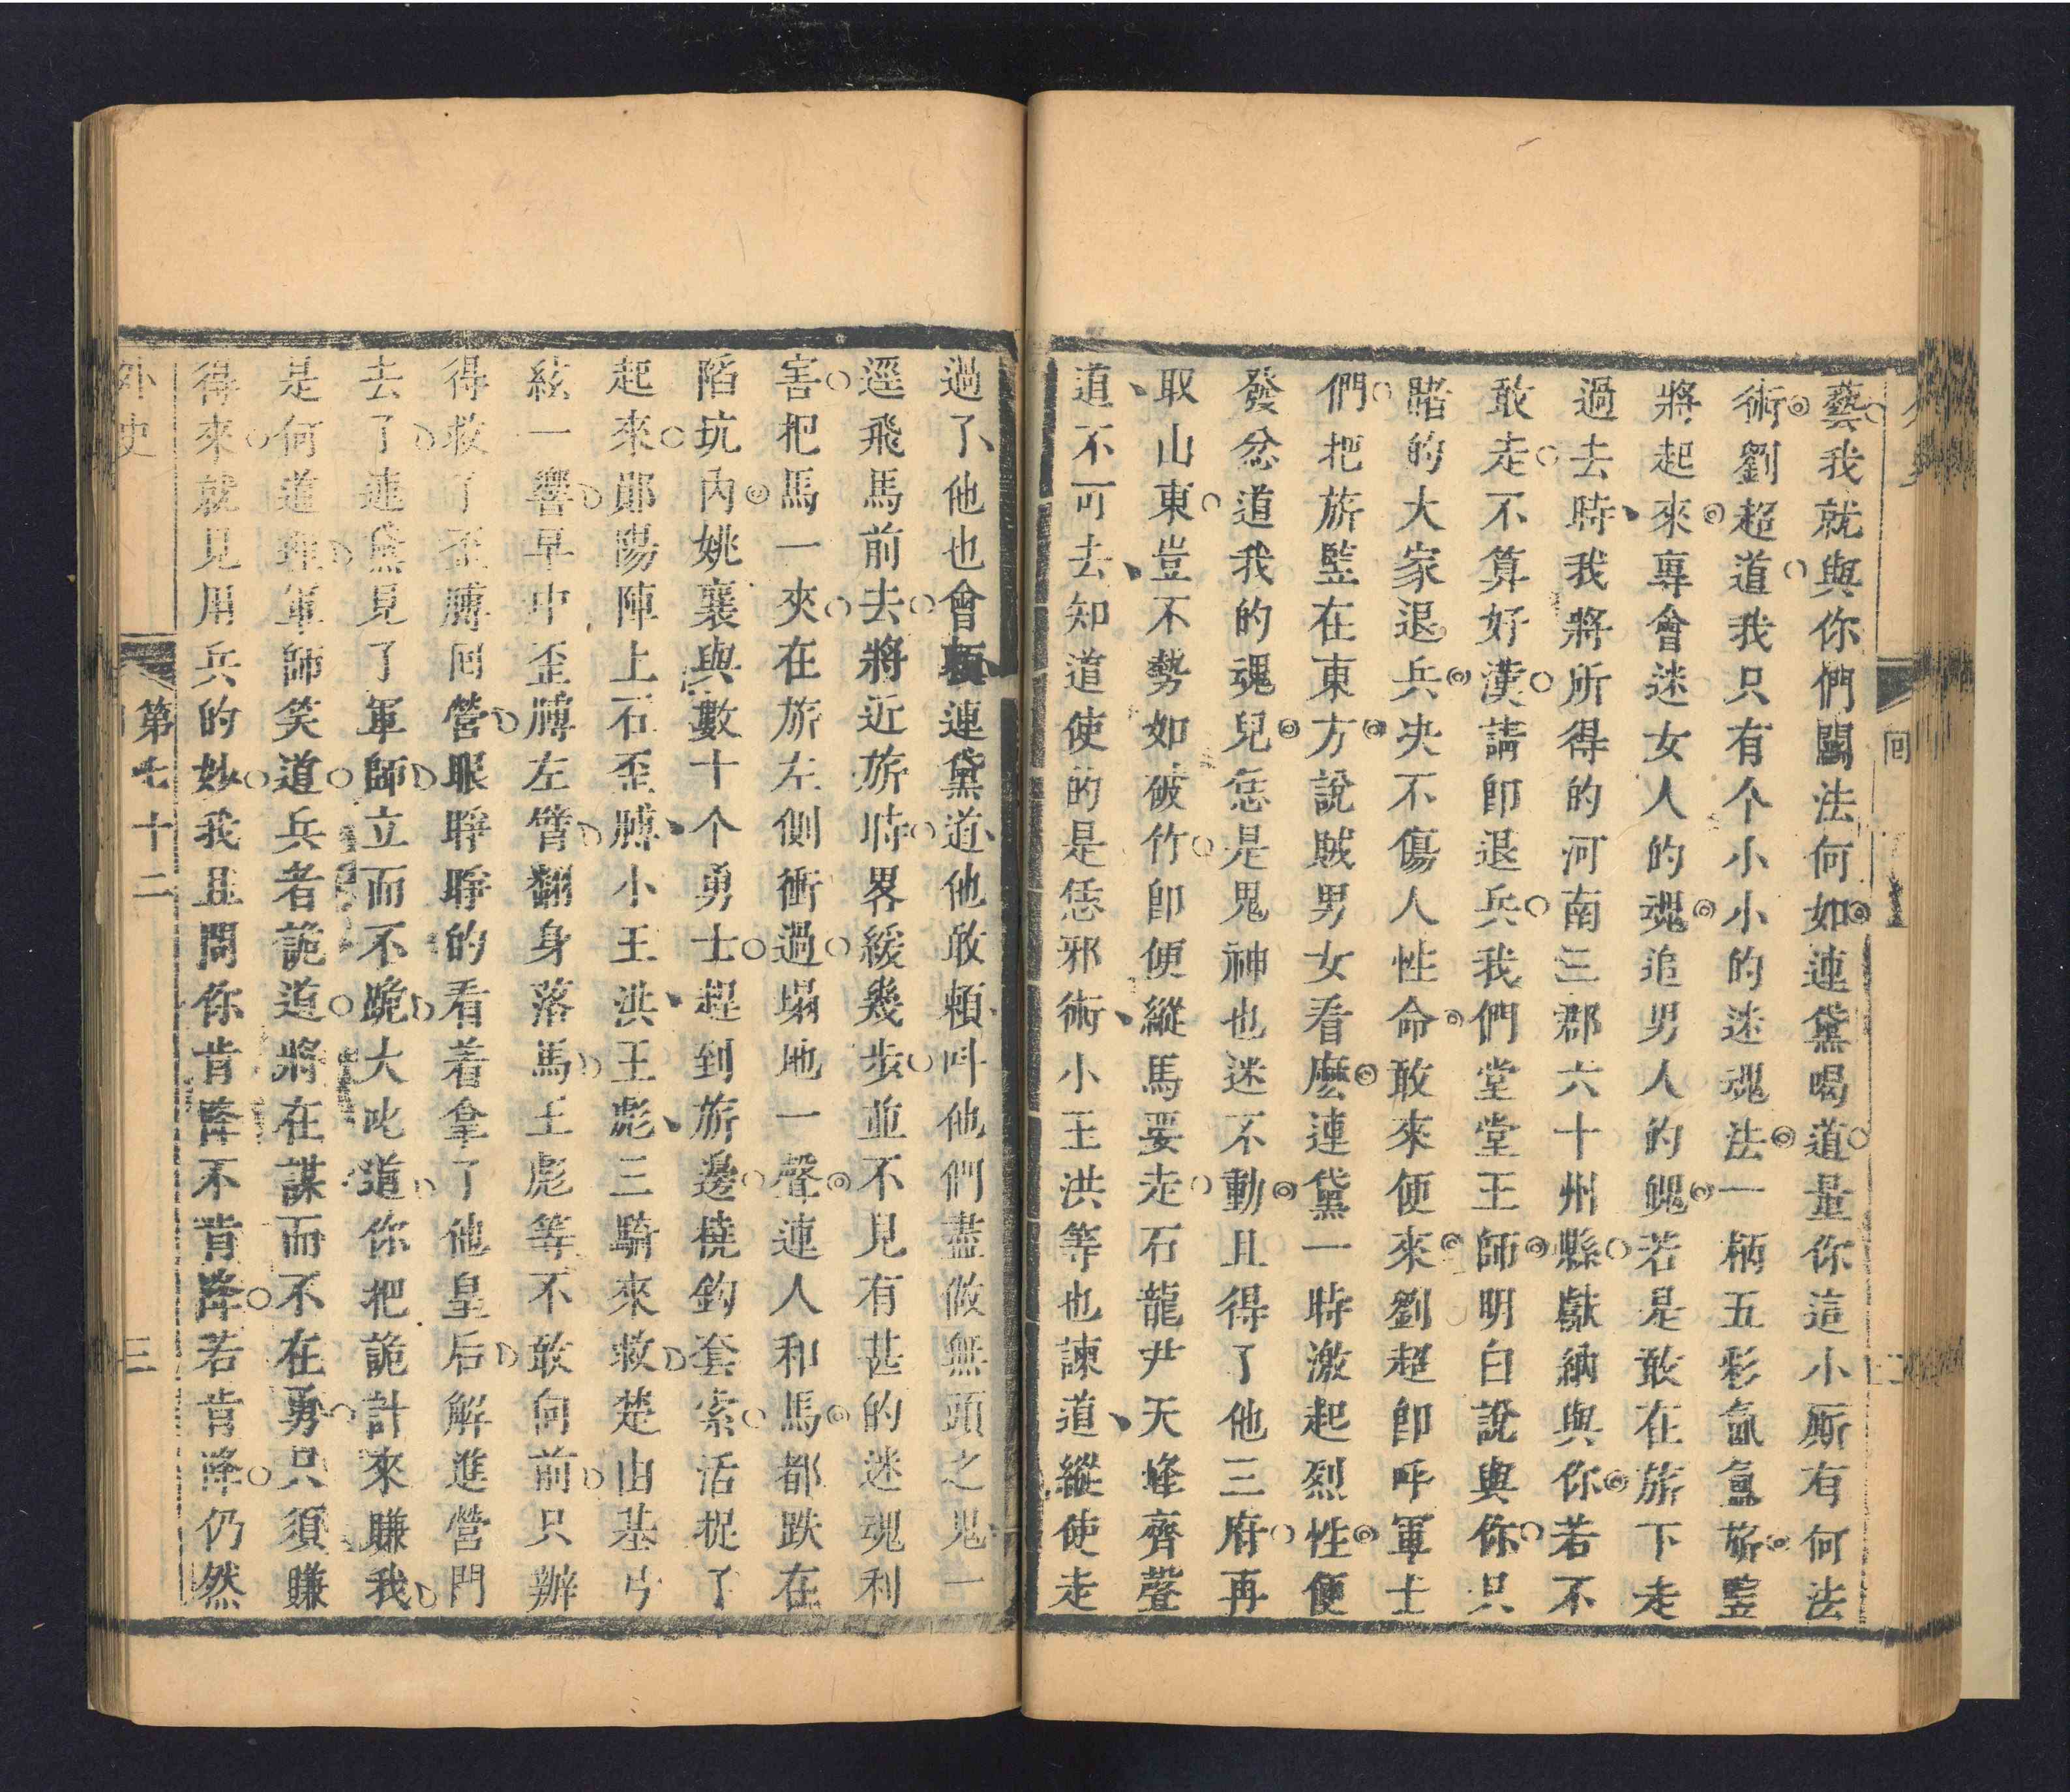 藝我就與你們鬪法何如連黛喝道量你這小厮有何法
術劉超道我只有个小小的迷魂法一柄五彩氤氳旂豎
將起來專會迷女人的魂追男人的魄若是敢在旂下走
過去時我將所得的河南三郡六十州縣獻納與你若不
敢走不算好漢請卽退兵我們堂堂王師明白說與你只
賭的大家退兵决不傷人性命敢來便來劉超卽呼軍士
們把旂豎在東方說賊男女看麼連黛一時激起烈性便
發忿道我的魂兒恁是鬼神也迷不動且得了他三府再
取山東豈不勢如破竹卽便縱馬要走石龍尹天峰齊聲
道不可去知道使的是恁邪術小王洪等也諫道縱使走
過了他也會賴連黛道他敢賴叫他們盡做無頭之鬼一
逕飛馬前去將近旂時畧緩幾步並不見有甚的迷魂利
害把馬一夾在旂左側衝過塌地一聲連人和馬都跌在
陷坑內姚襄與數十个勇士趕到旂邊撓鈎套索活捉了
起來鄖陽陣上石歪膊小王洪王彪三騎來救楚由基弓
絃一響早中歪膊左臂翻身落馬王彪等不敢向前只辦
得救了歪膊回營眼睜睜的看着拿了他皇后解進營門
去了連黛見了軍師立而不跪大叱道你把詭計來賺我
是何道理軍師笑道兵者詭道將在謀而不在勇只須賺
得來就見用兵的妙我且問你肯降不肯降若肯降仍然
外史
第七十二
三
回
二